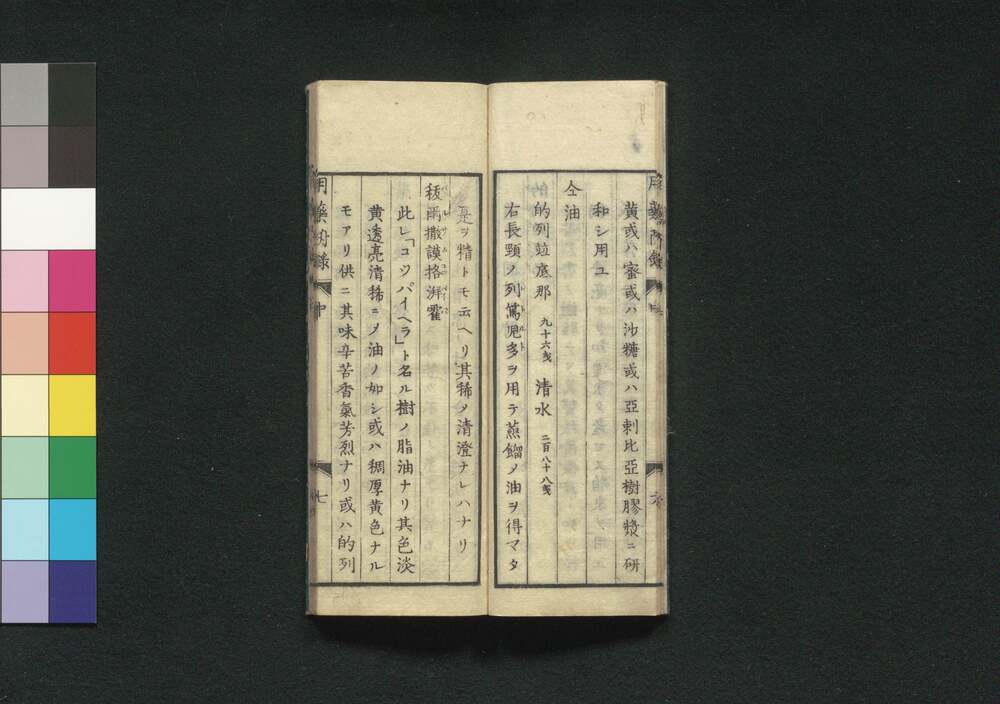 黄或ハ蜜或ハ沙糖或ハ亞剌比亞樹膠漿ニ研
和シ用ユ
仝油
的列䇇底那 九十六戔 清水 二百八十八戔
右長頸ノ列篤兒多ヲ用テ蒸餾ノ油ヲ得マタ
六
是ヲ精トモ云ヘリ其稀メ清澄ナレハナリ
拔爾撒謨格湃霍
此レ「コツパイヘラ」ト名ル樹ノ脂油ナリ其色淡
黄透亮清稀ニメ油ノ如シ或ハ稠厚黄色ナル
モアリ供ニ其味辛苦香氣芳烈ナリ或ハ的列
七